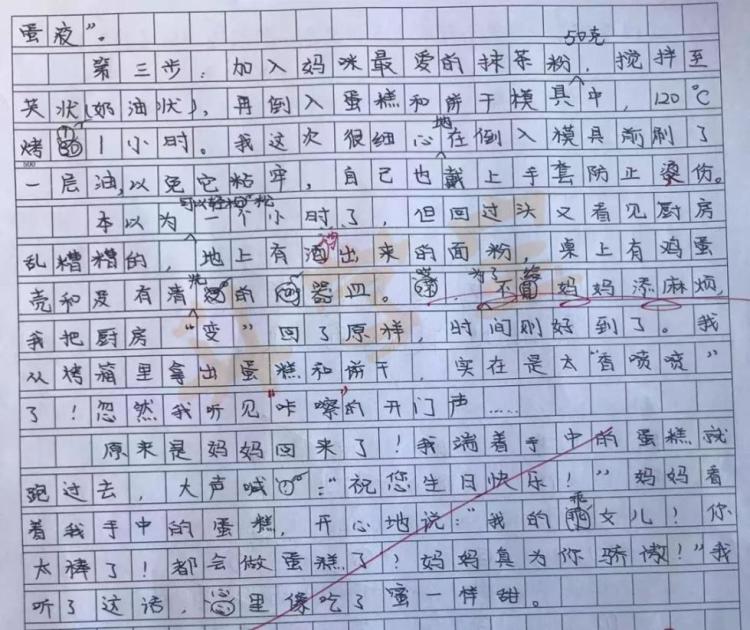 蛋液”。
50克
第三步：加入妈咪最爱的抹茶粉，搅拌至
英状（奶油状），再倒入蛋糕和饼干模具中，120℃
烤1小时。我这次很细心地在倒入模具前刷了
一层油，以免它粘牢，自己也戴上手套防止烫伤。
可以轻松
本以为一个小时了，但回过头又看见厨房
乱糟糟的，地上有洒出来的面粉，桌上有鸡蛋
壳和没有清洗的器皿。为了不给妈妈添麻烦，
我把厨房“变”回了原样，时间刚好到了。我
从烤箱里拿出蛋糕和饼干，实在是太“香喷喷”
了！忽然我听见“咔嚓”的开门声……
原来是妈妈回来了！我端着手中的蛋糕就
跑过去，大声喊：“祝您生日快乐！”妈妈看
着我手中的蛋糕，开心地说：“我的乖女儿！你
太棒了！都会做蛋糕了？妈妈真为你骄傲！”我
听了这话，心里像吃了蜜一样甜。